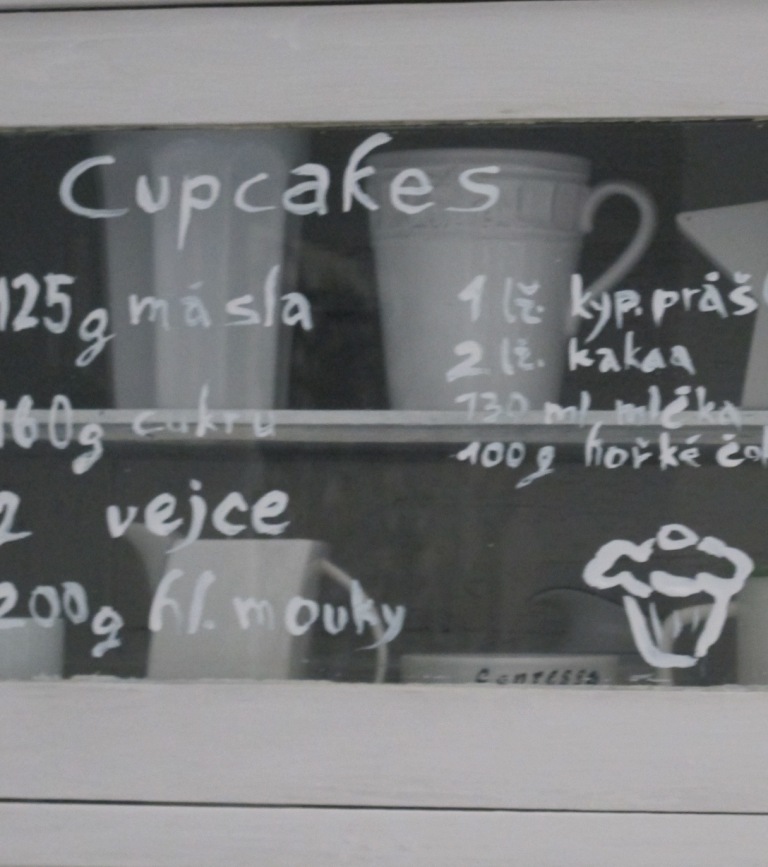 Cupcakes
125g másla
160g cukru
2 vejce
200g hl. mouky
1 lž. kyp. práš
2 lž. kakaa
130 ml mléka
100g hořké čok
Contessa